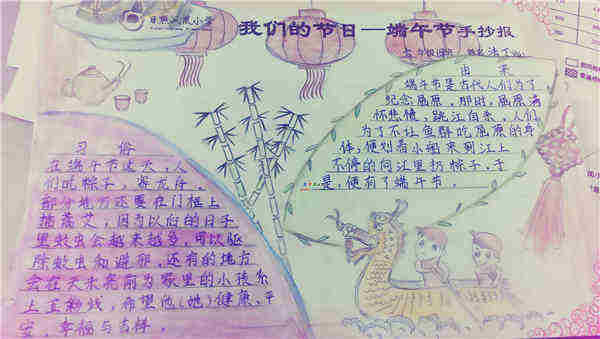 日照凤凰小学
我们的节日—端午节手抄报
由来
端午节是古代人们为了
纪念屈原，那时，屈原满
怀悲愤，跳江自杀，人们
为了不让鱼虾吃屈原的身
体，便划着小船来到江上
不停的向江里扔粽子，于
是，便有了端午节。
习俗
在端午节这天，人
们吃粽子，赛龙舟。
部分地方还要在门框上
插蒿艾，因为以后的日子
里蚊虫会越来越多，可以驱
除蚊虫和避邪，还有的地方
会在天未亮前为家里的小孩系
上五彩线，希望他(她)健康、平
安、幸福与吉祥。